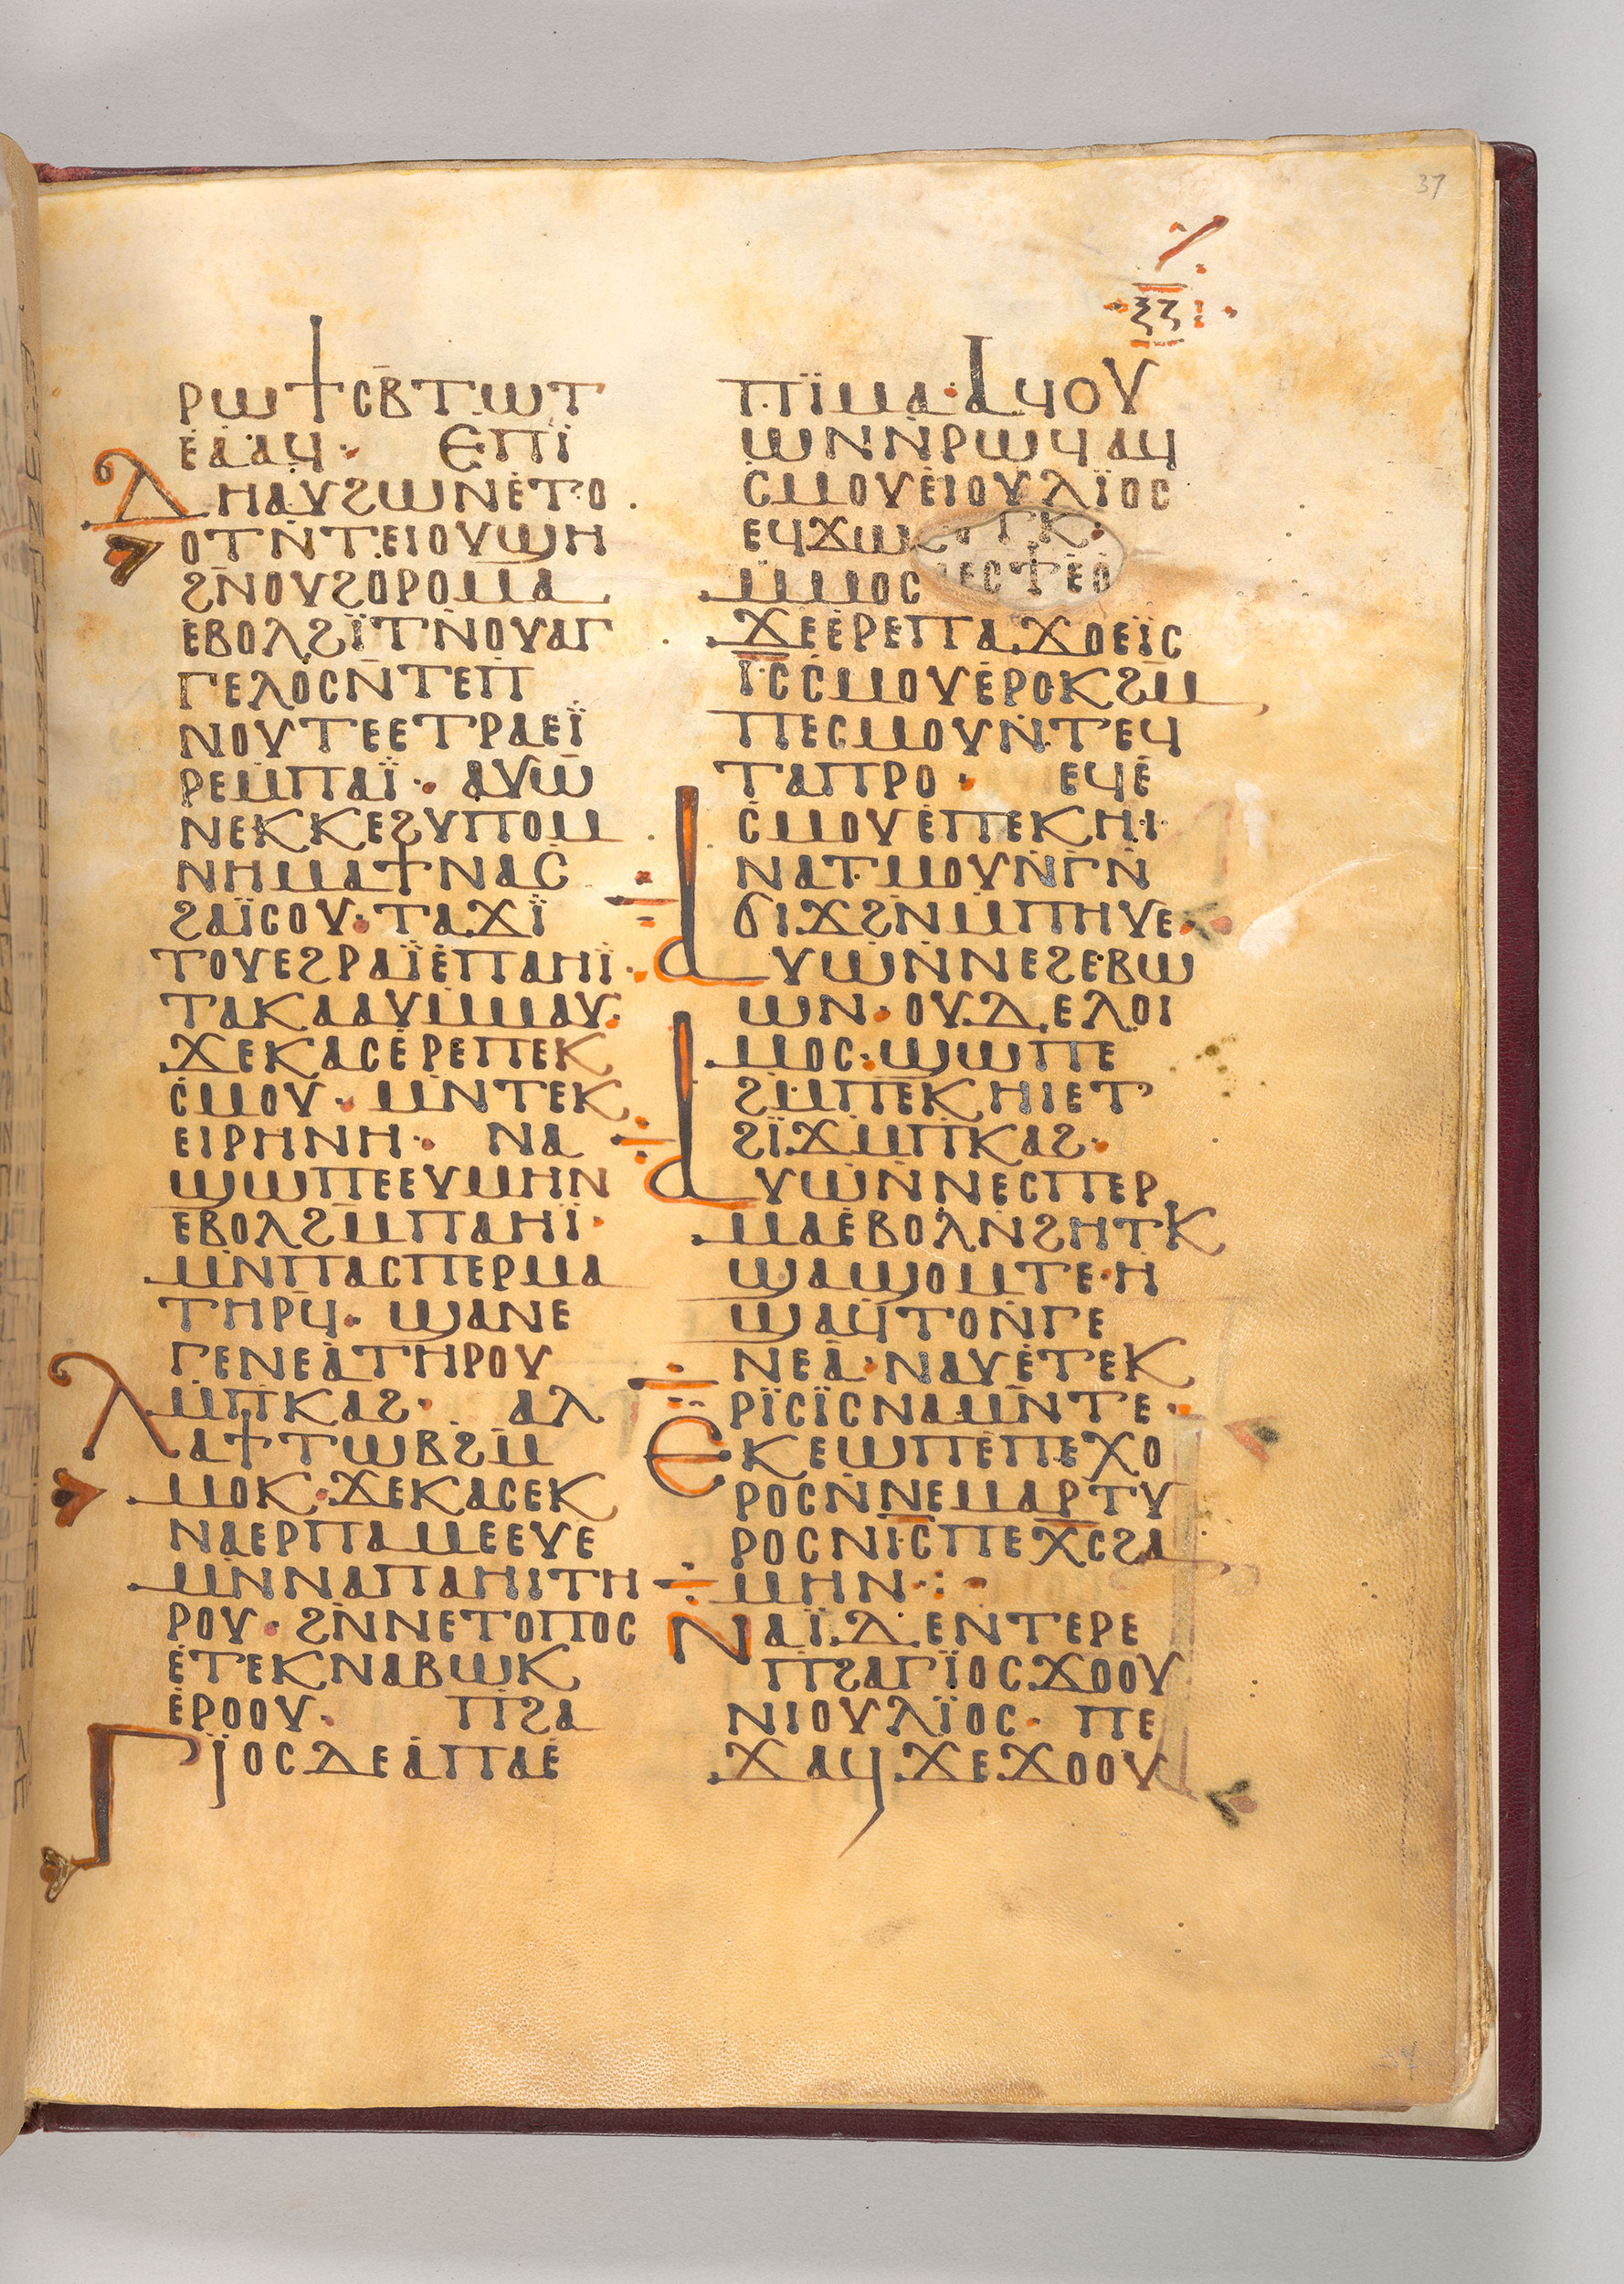 37
ⲝⲍ
ⲣⲱϯⲥⲃⲧⲱⲧ
ⲉⲁⲁϥ· ⲉⲡⲓ̈
ⲇⲏⲁⲩϩⲱⲛⲉⲧⲟ
ⲟⲧⲛ̇ⲧⲉⲓⲟⲩϣⲏ
ϩⲛ̇ⲟⲩϩⲟⲣⲟⲙⲁ
ⲉⲃⲟⲗϩⲓ̈ⲧⲛ̇ⲟⲩⲁⲅ
ⲅⲉⲗⲟⲥⲛ̇ⲧⲉⲡ
ⲛⲟⲩⲧⲉⲉⲧⲣⲁⲉⲓ̈
ⲣⲉⲙ̇ⲡⲁⲓ̈· ⲁⲩⲱ
ⲛⲉⲕⲕⲉϩⲩⲡⲟⲙ
ⲛⲏⲙⲁϯⲛⲁⲥ
ϩⲁⲓ̈ⲥⲟⲩ·ⲧⲁϫⲓ̈
ⲧⲟⲩⲉϩⲣⲁⲓ̈ⲉ̇ⲡⲁⲏⲓ̈·
ⲧⲁⲕⲁⲁⲩⲙ̇ⲙⲁⲩ·
ϫⲉⲕⲁⲥⲉ̇ⲣⲉⲡⲉⲕ
ⲥⲙⲟⲩ·ⲙⲛ̇ⲧⲉⲕ
ⲉⲓⲣⲏⲛⲏ· ⲛⲁ
ϣⲱⲡⲉⲉⲩⲙⲏⲛ
ⲉⲃⲟⲗϩⲙ̇ⲡⲁⲏⲓ̈·
ⲙⲛ̇ⲡⲁⲥⲡⲉⲣⲙⲁ
ⲧⲏⲣϥ·ϣⲁⲛⲉ
ⲅⲉⲛⲉⲁ̇ⲧⲏⲣⲟⲩ
ⲙ̇ⲡⲕⲁϩ· ⲁⲗ
ⲗⲁϯⲧⲱⲃϩⲙ̇
ⲙⲟⲕ·ϫⲉⲕⲁⲥⲉⲕ
ⲛⲁⲉⲣⲡⲁⲙⲉⲉⲩⲉ
ⲙⲛ̇ⲛⲁⲡⲁⲏⲓⲧⲏ
ⲣⲟⲩ·ϩⲛ̇ⲛⲉⲧⲟⲡⲟⲥ
ⲉ̇ⲧⲉⲕⲛⲁⲃⲱⲕ
ⲉ̇ⲣⲟⲟⲩ· ⲡϩⲁ
ⲅⲓ̈ⲟⲥⲇⲉⲁ̇ⲡⲁⲉ̇
ⲡⲓ̈ⲙⲁ·ⲁϥⲟⲩ
ⲱⲛⲛ̇ⲣⲱϥⲁϥ
ⲥⲙⲟⲩⲉ̇ⲓⲟⲩⲗⲓ̈ⲟⲥ
ⲉϥϫⲱ
ⲙ̇ⲙⲟⲥ
ϫⲉⲉ̇ⲣⲉⲡⲁϫⲟⲉⲓ̈ⲥ
ⲓ̅ⲥ̅ⲥⲙⲟⲩⲉ̇ⲣⲟⲕϩⲙ
ⲡⲉⲥⲙⲟⲩⲛ̇ⲧⲉϥ
ⲧⲁⲡⲣⲟ· ⲉϥⲉ̇
ⲥⲙⲟⲩⲉ̇ⲡⲉⲕⲏⲓ
ⲛⲁⲧⲙⲟⲩⲛ̇ⲅⲛ̇
ϭⲓϫϩⲛ̇ⲙ̇ⲡⲏⲩⲉ·
ⲁⲩⲱⲛ̇ⲛⲉϩⲉⲃⲱ
ⲱⲛ·ⲟⲩⲇⲉⲗⲟⲓ
ⲙⲟⲥ·ϣⲱⲡⲉ
ϩⲙ̇ⲡⲉⲕⲏⲓⲉⲧ
ϩⲓ̈ϫⲙ̇ⲡⲕⲁϩ·
ⲁⲩⲱⲛ̇ⲛⲉⲥⲡⲉⲣ
ⲙⲁⲉ̇ⲃⲟⲗⲛ̇ϩⲏⲧⲕ
ϣⲁϣⲟⲙⲧⲉ·ⲏ̇
ϣⲁϥⲧⲟⲛ̇ⲅⲉ
ⲛⲉⲁ̇·ⲛⲁⲩⲉ̇ⲧⲉⲕ
ⲣⲓ̈ⲥⲓ̈ⲥⲛⲁⲙⲛ̇ⲧⲉ·
ⲉⲕⲉⲱⲡⲉ̇ⲡⲉⲭⲟ
ⲣⲟⲥⲛ̇ⲛⲉⲙⲁⲣⲧⲩ
ⲣⲟⲥⲛ̇ⲓ̅ⲥ̅ⲡⲉⲭⲥϩⲁ
ⲙⲏⲛ·:·
ⲛⲁⲓ̈ⲇⲉⲛⲧⲉⲣⲉ
ⲡϩⲁⲅⲓ̈ⲟⲥϫⲟⲟⲩ
ⲛⲓⲟⲩⲗⲓ̈ⲟⲥ· ⲡⲉ
ϫⲁϥϫⲉϫⲟⲟⲩ